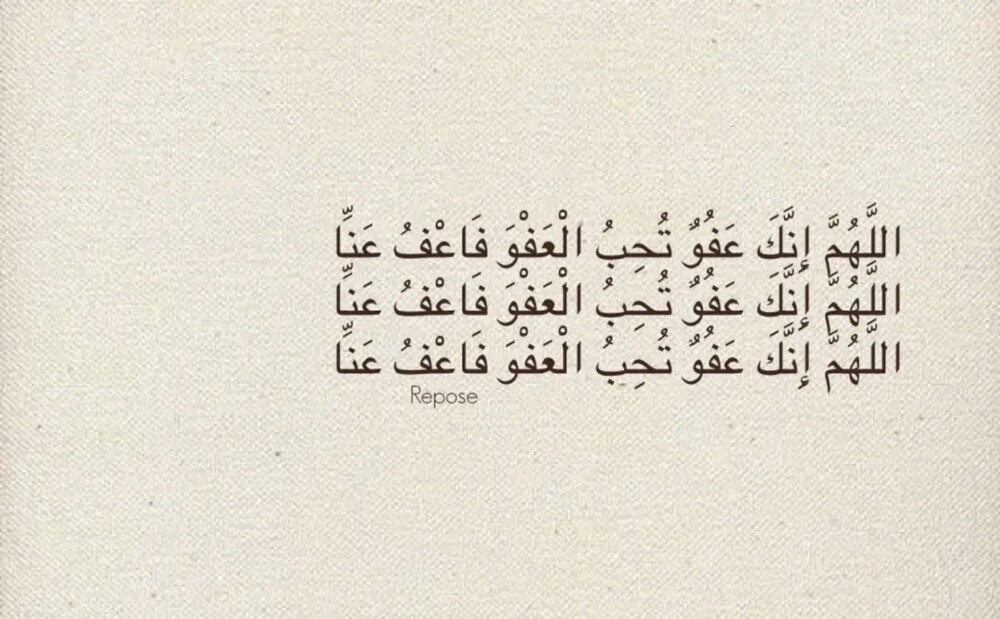 اللَّهُمَّ إِنَّكَ عَفُوٌّ تُحِبُ الْعَفْوَ فَاعْفُ عَنِّا
اللَّهُمَّ إِنَّكَ عَفُوٌّ تُحِبُ الْعَفْوَ فَاعْفُ عَنِّا
اللَّهُمَّ إِنَّكَ عَفُوٌّ تُحِبُ الْعَفْوَ فَاعْفُ عَنِّا
Repose